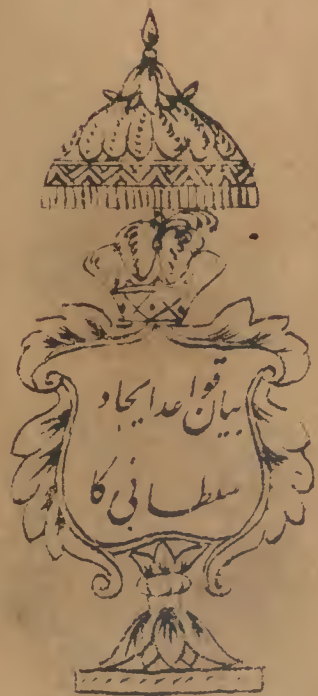 بیان قواعد ایجاد
سلطانی کا